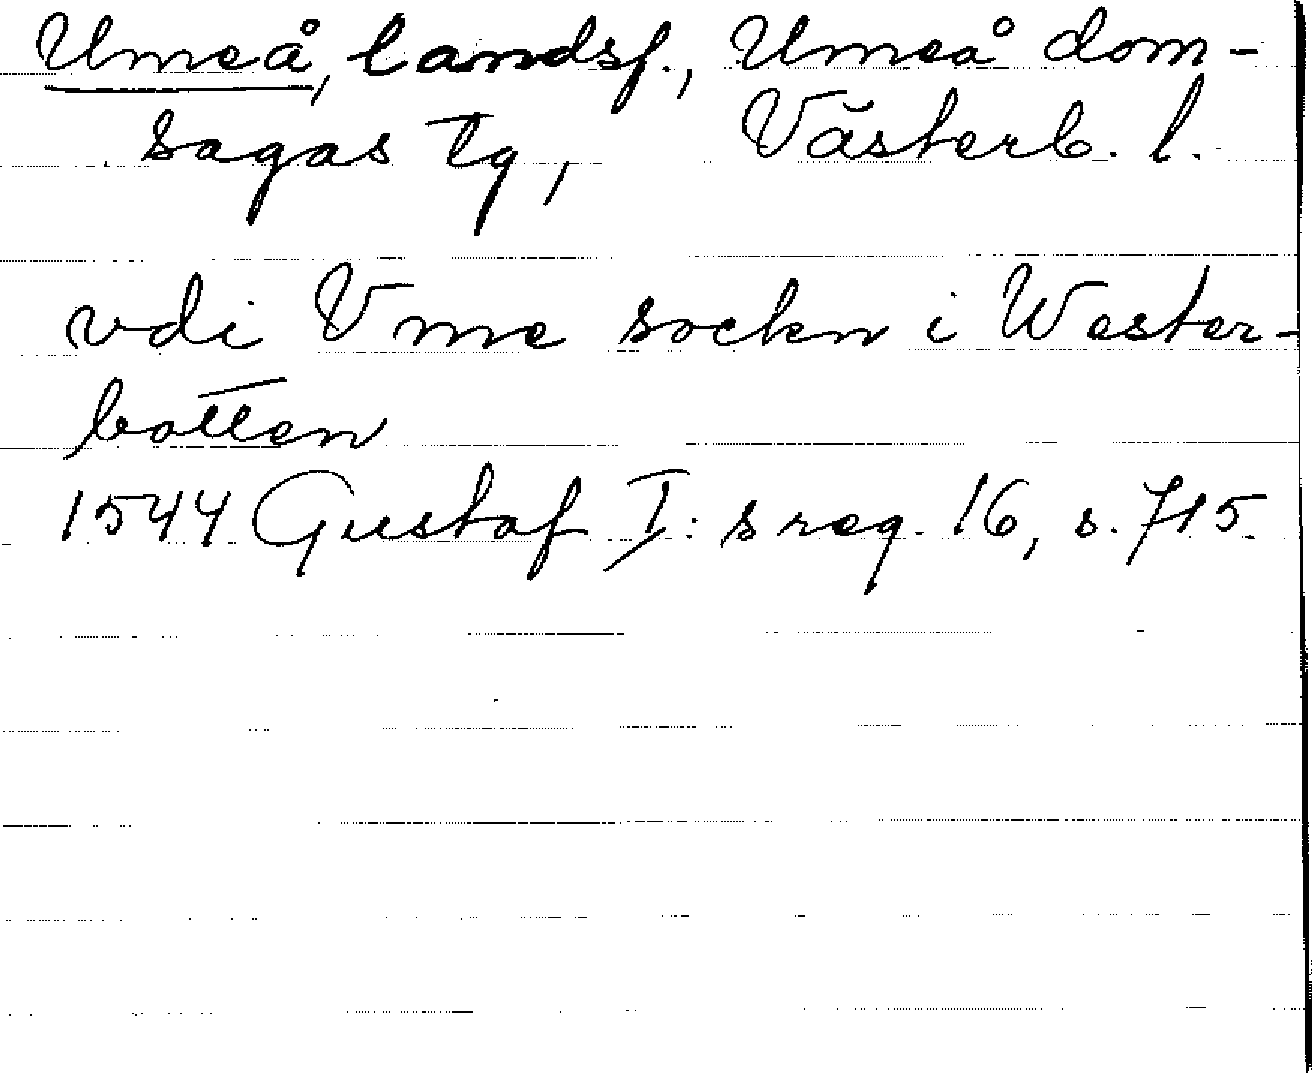 Umeå, landsf., Umeå dom-
sagas tg, Västerb. l.
vdi Vme sockn i Wester-
botten
1544 Gustaf I:s reg. 16, s. 715.